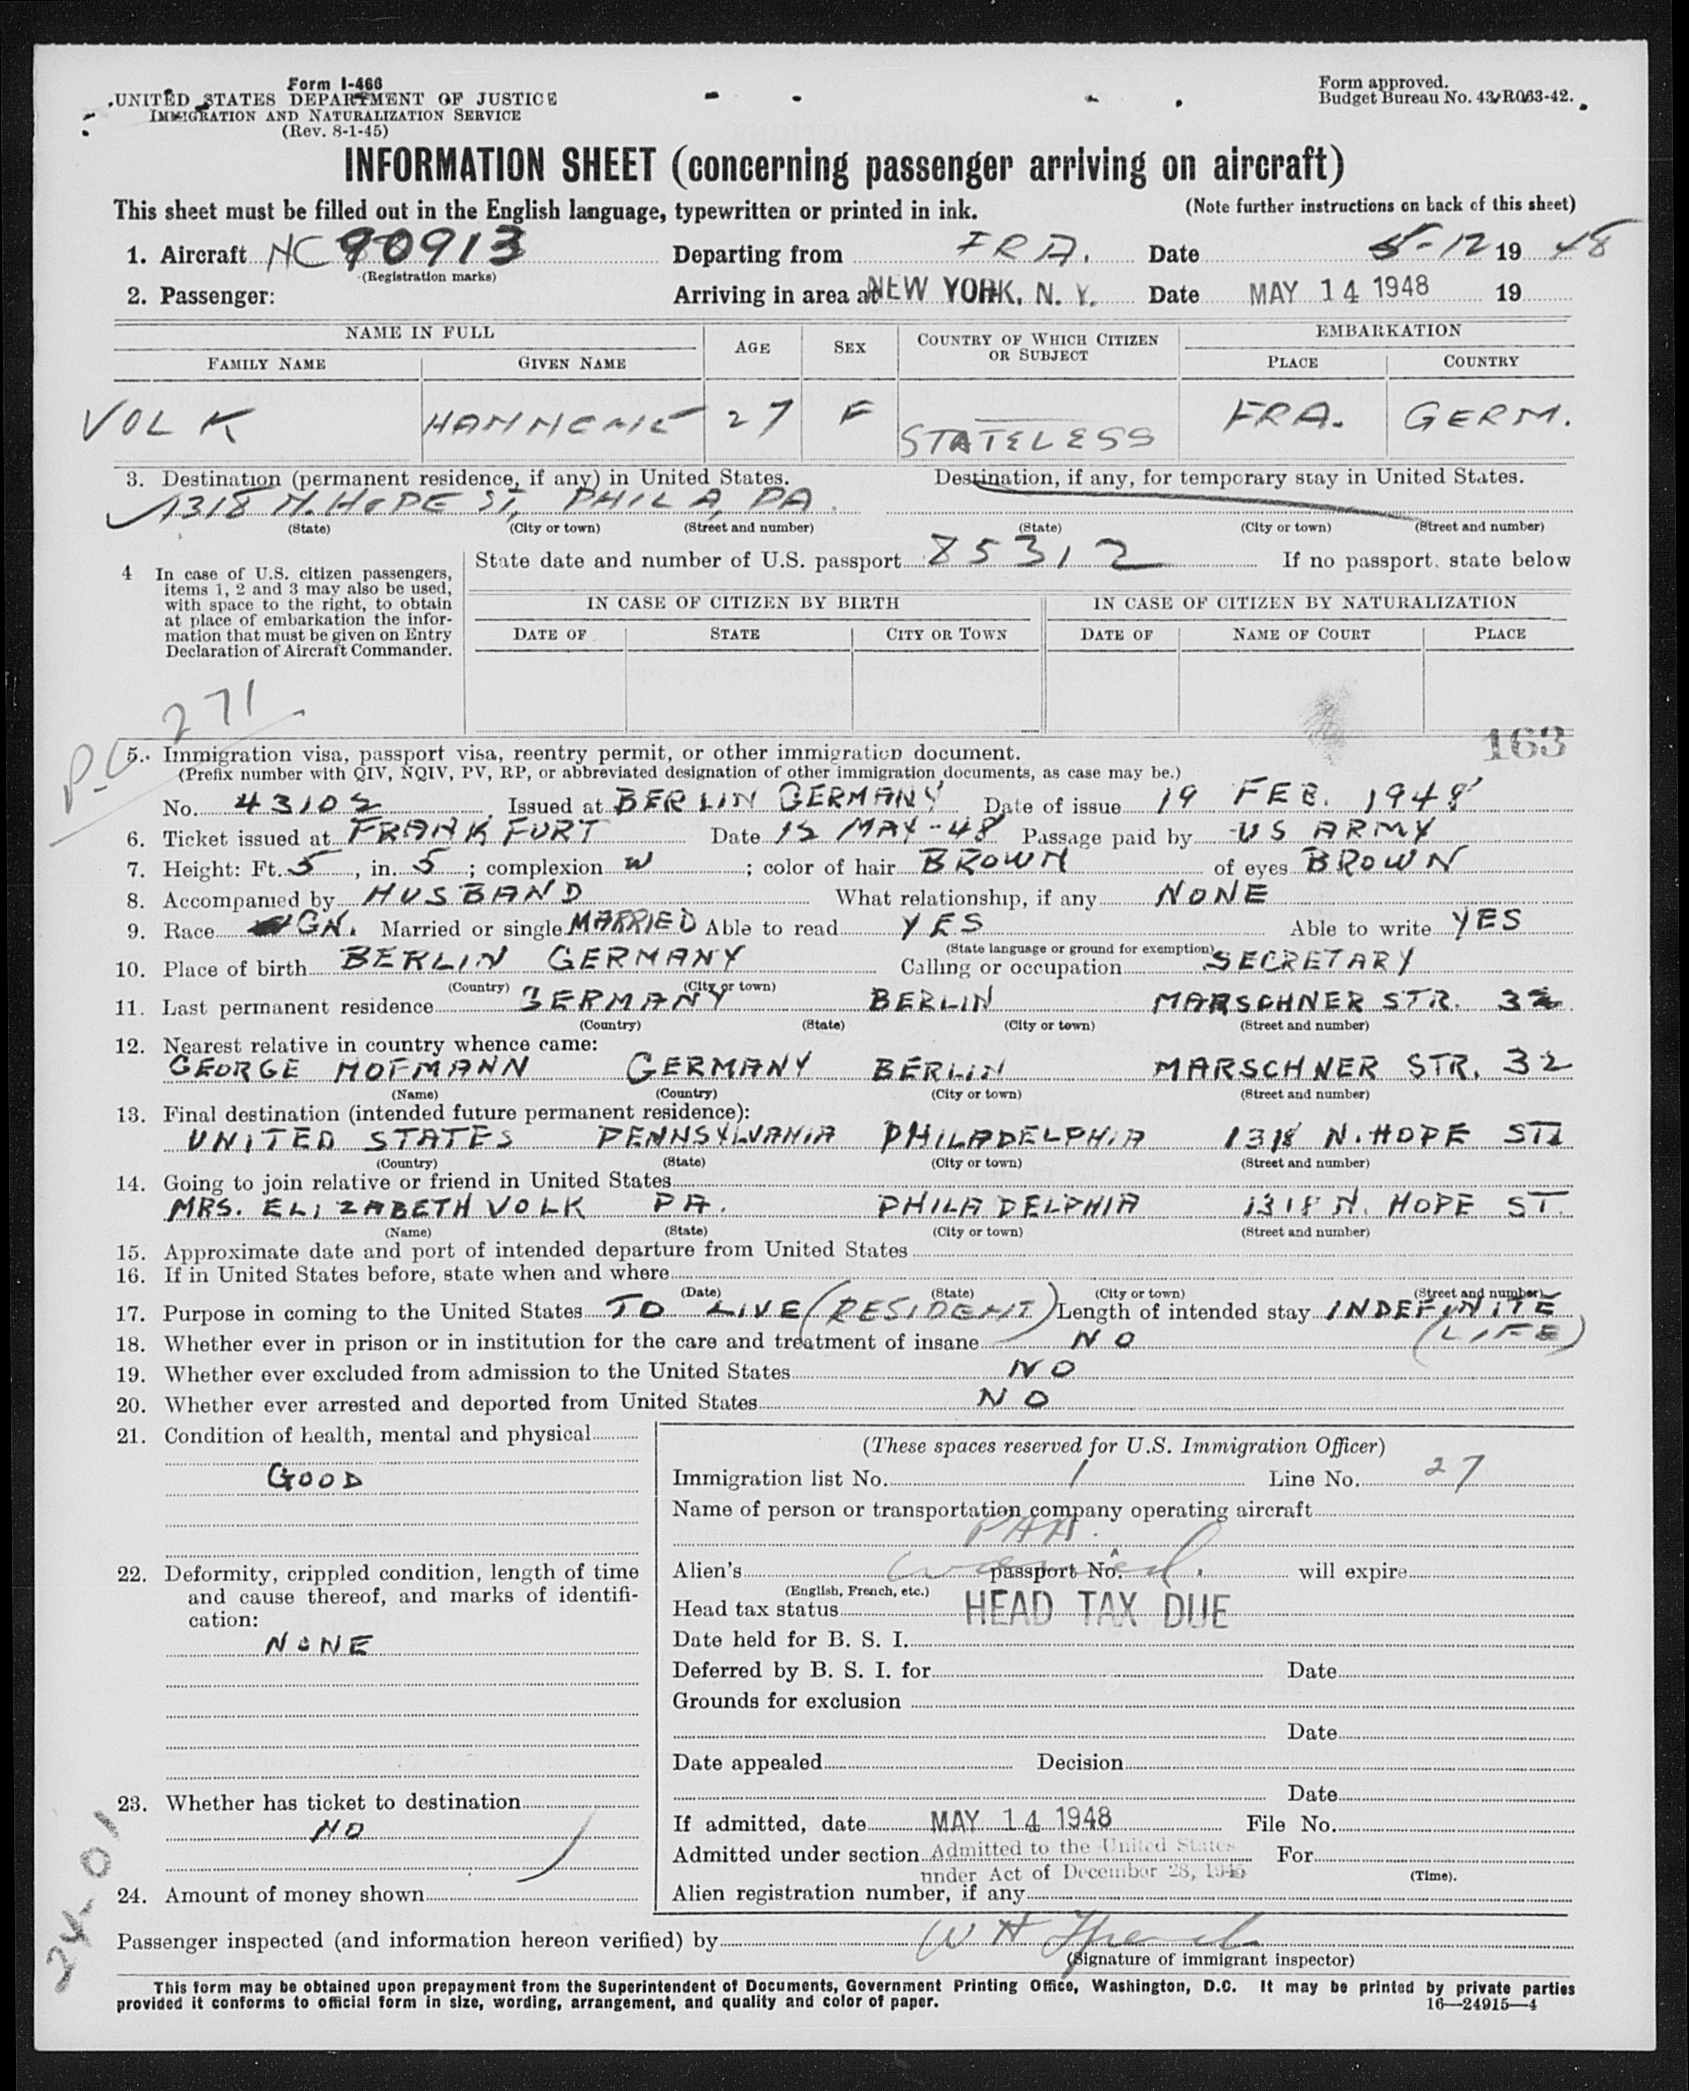 Form I-466
UNITED STATES DEPARTMENT OF JUSTICE
IMMIGRATION AND NATURALIZATION SERVICE
(Rev. 8-1-45)
Form approved.
Budget Bureau No. 43-R063-42.
INFORMATION SHEET (concerning passenger arriving on aircraft)
This sheet must be filled out in the English language, typewritten or printed in ink. (Note further instructions on back of this sheet)
1. Aircraft NC90913 Departing from FRA. Date 5-12 19 48
(Registration marks)
2. Passenger: Arriving in area at NEW YORK, N. Y. Date MAY 14 1948 19
NAME IN FULL AGE SEX COUNTRY OF WHICH CITIZEN OR SUBJECT EMBARKATION
FAMILY NAME GIVEN NAME PLACE COUNTRY
VOLK 27 F STATELESS FRA. GERM.
3. Destination (permanent residence, if any) in United States. Destination, if any, for temporary stay in United States.
1318 N. HOPE ST, PHILA, PA
(State) (City or town) (Street and number) (State) (City or town) (Street and number)
4 In case of U.S. citizen passengers, items 1, 2 and 3 may also be used, with space to the right, to obtain at place of embarkation the information that must be given on Entry Declaration of Aircraft Commander.
State date and number of U.S. passport 85312 If no passport, state below
IN CASE OF CITIZEN BY BIRTH IN CASE OF CITIZEN BY NATURALIZATION
DATE OF STATE CITY OR TOWN DATE OF NAME OF COURT PLACE
271
163
5. Immigration visa, passport visa, reentry permit, or other immigration document.
(Prefix number with QIV, NQIV, PV, RP, or abbreviated designation of other immigration documents, as case may be.)
No. 43102 Issued at BERLIN GERMANY Date of issue 19 FEB. 1948
6. Ticket issued at FRANKFURT Date 12 MAY-48 Passage paid by US ARMY
7. Height: Ft. 5, in. 5; complexion W; color of hair BROWN of eyes BROWN
8. Accompanied by HUSBAND What relationship, if any NONE
9. Race GN. Married or single MARRIED Able to read YES Able to write YES
(State language or ground for exemption)
10. Place of birth BERLIN GERMANY Calling or occupation SECRETARY
(Country) (City or town)
11. Last permanent residence GERMANY BERLIN MARSCHNER STR. 32
(Country) (State) (City or town) (Street and number)
12. Nearest relative in country whence came:
GEORGE HOFMANN GERMANY BERLIN MARSCHNER STR. 32
(Name) (Country) (City or town) (Street and number)
13. Final destination (intended future permanent residence):
UNITED STATES PENNSYLVANIA PHILADELPHIA 1318 N. HOPE ST
(Country) (State) (City or town) (Street and number)
14. Going to join relative or friend in United States
MRS. ELIZABETH VOLK PA. PHILADELPHIA 1318 N. HOPE ST.
(Name) (State) (City or town) (Street and number)
15. Approximate date and port of intended departure from United States
16. If in United States before, state when and where
(Date) (State) (City or town) (Street and number)
17. Purpose in coming to the United States TO LIVE (RESIDENT) Length of intended stay INDEFINITE
(LIFE)
18. Whether ever in prison or in institution for the care and treatment of insane NO
19. Whether ever excluded from admission to the United States NO
20. Whether ever arrested and deported from United States NO
21. Condition of health, mental and physical
GOOD
22. Deformity, crippled condition, length of time and cause thereof, and marks of identification:
NONE
23. Whether has ticket to destination
NO
24. Amount of money shown
24-01
(These spaces reserved for U.S. Immigration Officer)
Immigration list No. 1 Line No. 27
Name of person or transportation company operating aircraft
PAA.
Alien's waived. passport No. will expire
(English, French, etc.)
Head tax status HEAD TAX DUE
Date held for B. S. I.
Deferred by B. S. I. for Date
Grounds for exclusion
Date
Date appealed Decision
Date
If admitted, date MAY 14 1948 File No.
Admitted under section Admitted to the United States For
under Act of December 28, 1945 (Time).
Alien registration number, if any
Passenger inspected (and information hereon verified) by W H
(Signature of immigrant inspector)
This form may be obtained upon prepayment from the Superintendent of Documents, Government Printing Office, Washington, D.C. It may be printed by private parties
provided it conforms to official form in size, wording, arrangement, and quality and color of paper. 16—24915—4